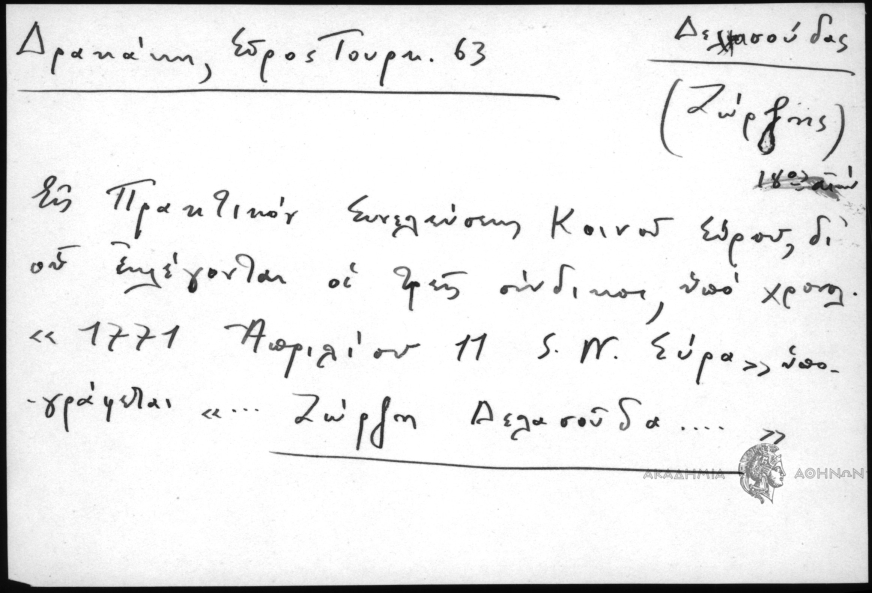 Δρακάκη, Σῦρος Τουρκ. 63
Δελασούδας
(Ζώρζης)
Εἰς Πρακτικὸν Συνελεύσεως Κοινοῦ Σύρου, δι'
οὗ ἐκλέγονται οἱ τρεῖς σύνδικοι, ὑπὸ χρονολ.
« 1771 Ἀπριλίου 11 S. N. Σύρα» ὑπο-
-γράφεται «... Ζώρζη Δελασοῦδα .... »
ΑΚΑΔΗΜΙΑ ΑΘΗΝΩΝ